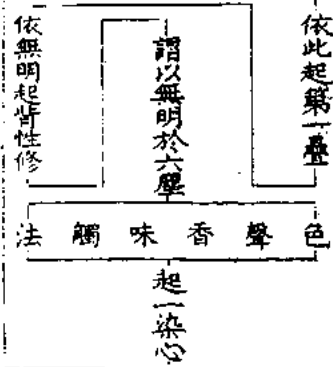 依此起第一疊
謂以無明於六塵
依無明起背性修
色聲香味觸法
起一染心